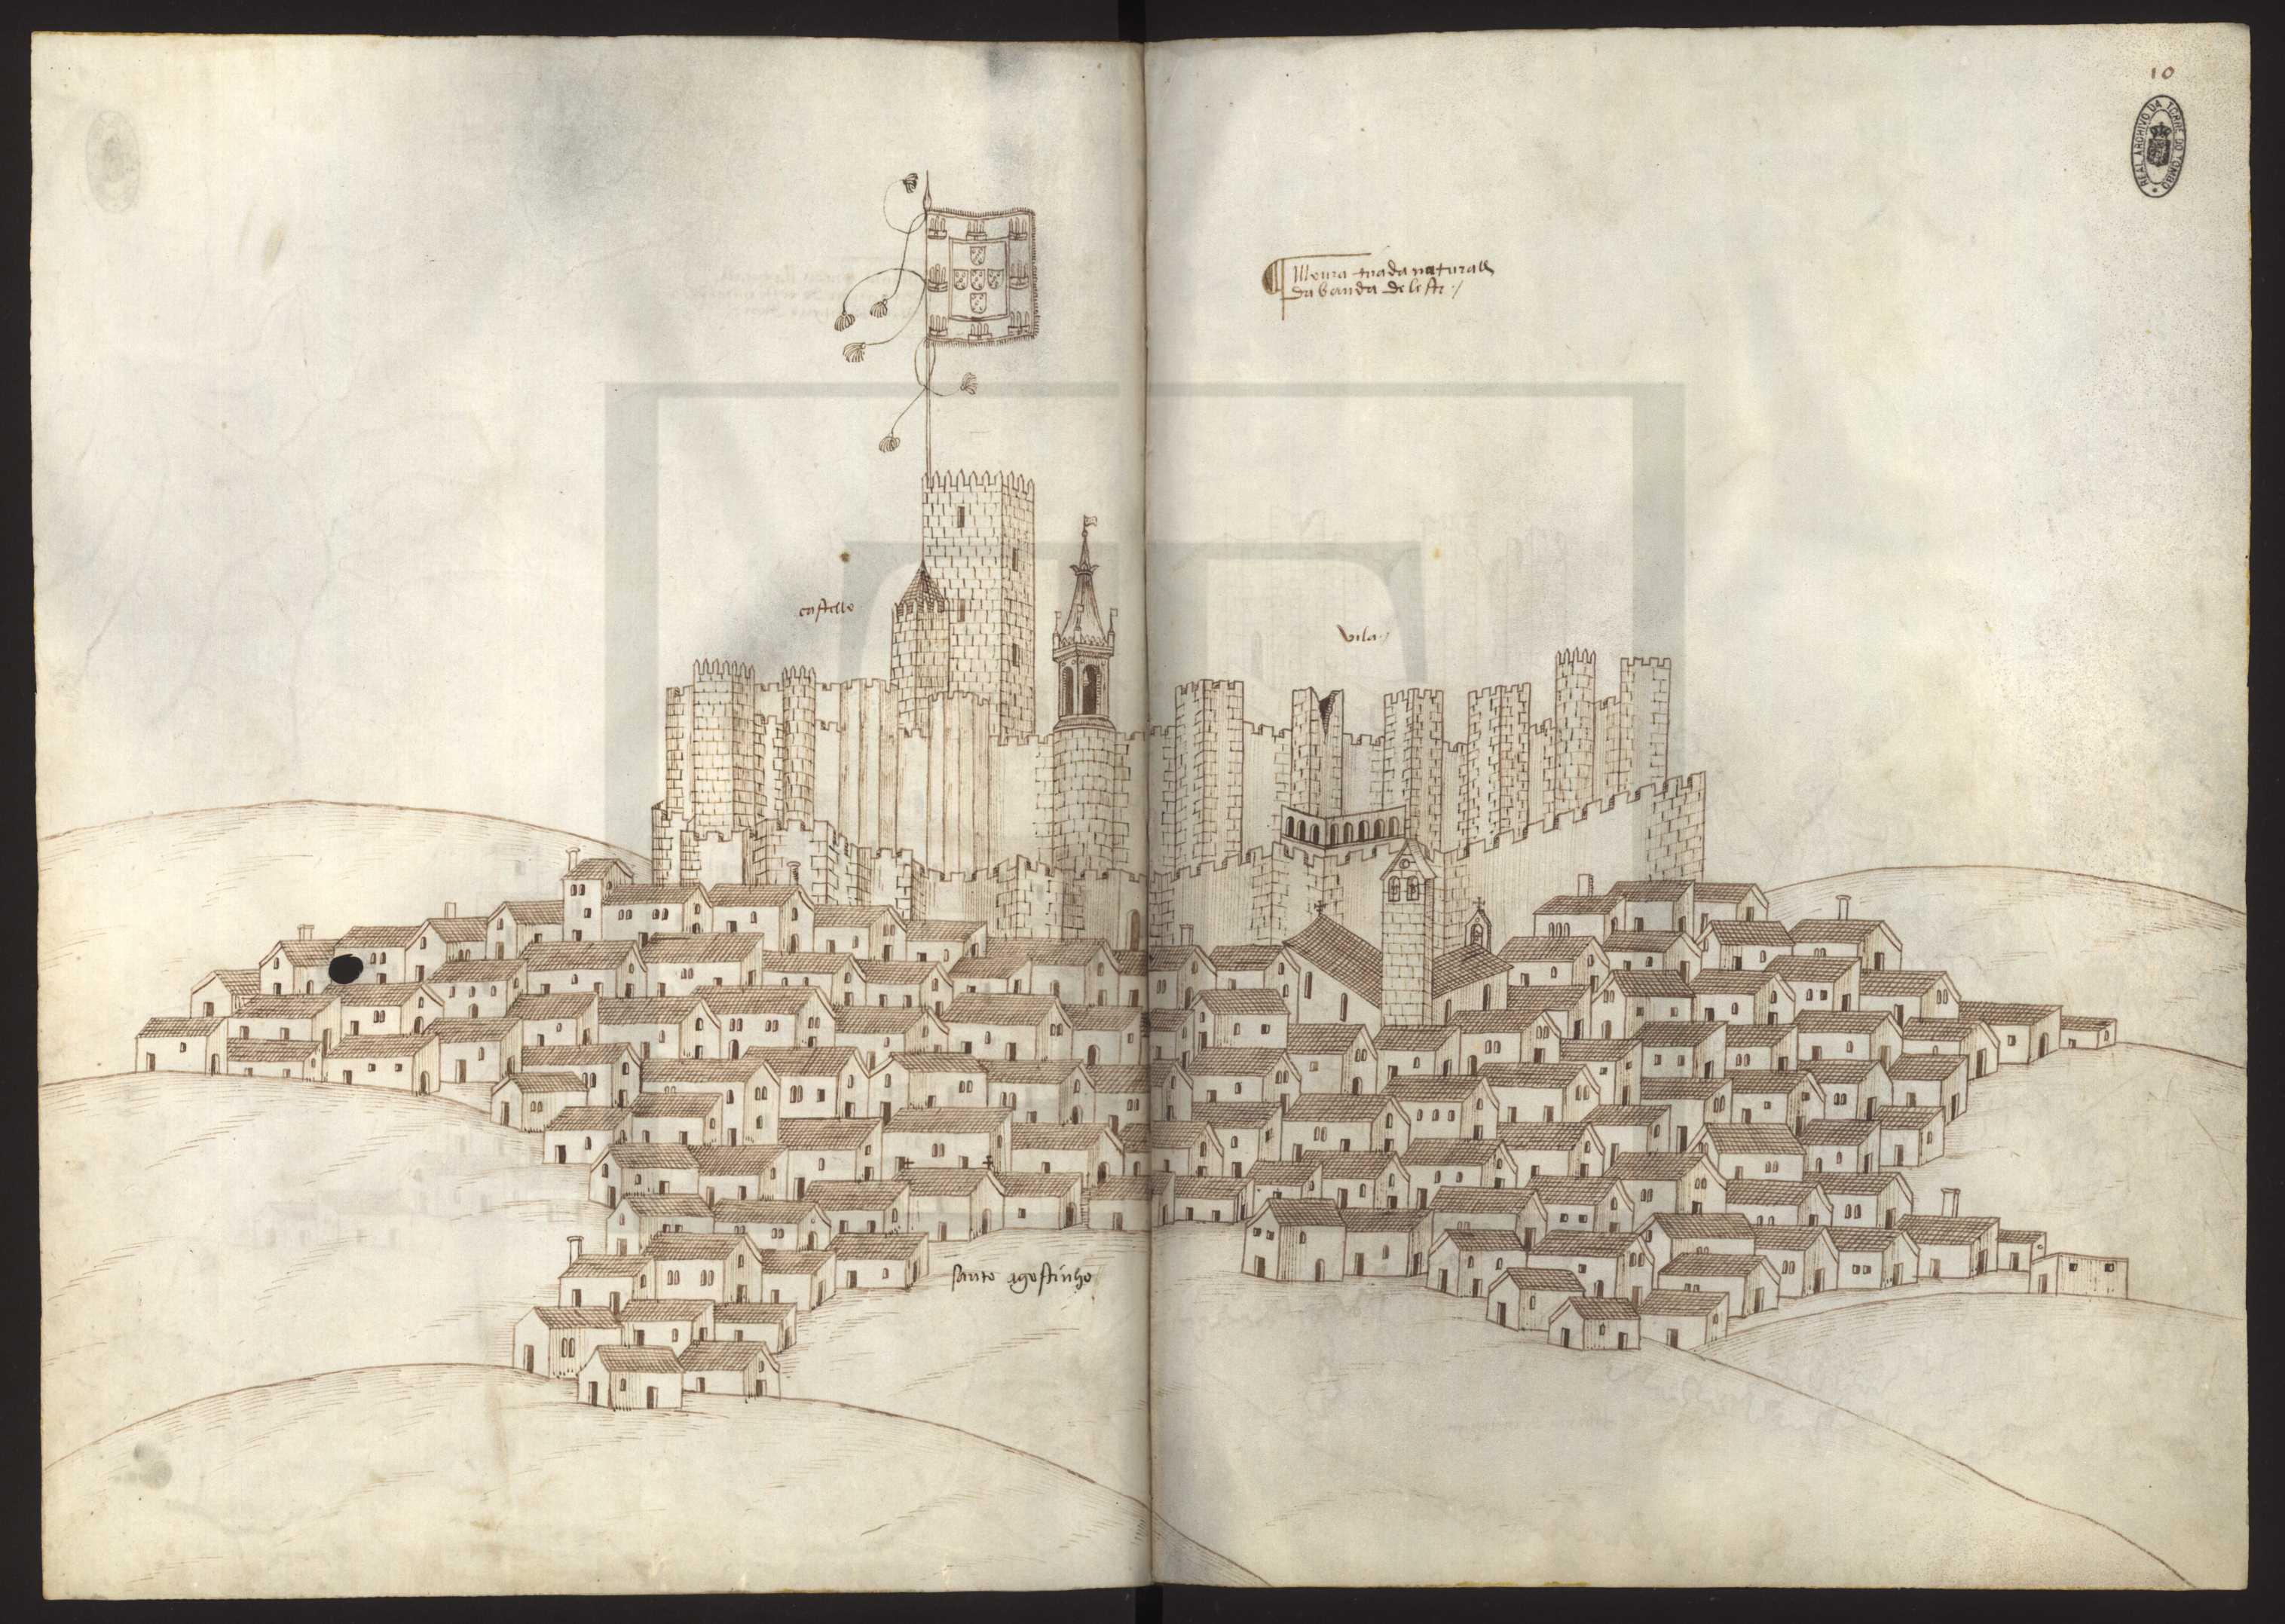 10
REAL ARCHIVO DA TORRE DO TOMBO
Moura tirada naturall
da banda de leste
castello
vila
santo agostinho